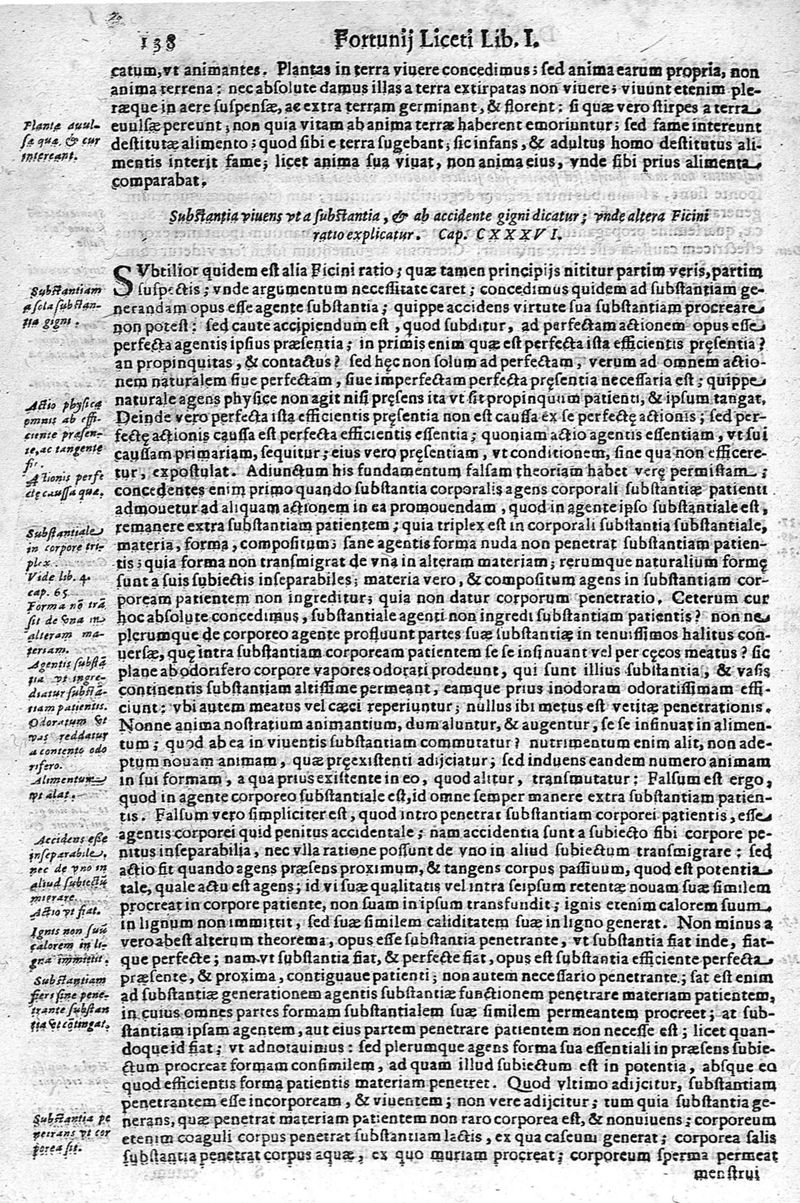 138
Fortunij Liceti Lib. I.
catum, vt animantes. Plantas in terra viuere concedimus; sed anima earum propria, non
anima terrena: nec absolute damus illas a terra extirpatas non viuere; viuunt etenim ple-
ræque in aere suspensæ, ac extra terram germinant, & florent: si quæ vero stirpes a terra
euulsæ pereunt; non quia vitam ab anima terræ haberent emoriuntur; sed fame intereunt
destitutæ alimento; quod sibi e terra sugebant; sic infans, & adultus homo destitutus ali-
mentis interit fame; licet anima sua viuat, non anima eius, vnde sibi prius alimenta
comparabat.
Plantæ auul-
sæ quæ, & cur
intereant.
Substantia viuens vt a substantia, & ab accidente gigni dicatur; vnde altera Ficini
ratio explicatur. Cap. CXXXVI.
SVbtilior quidem est alia Ficini ratio; quæ tamen principijs nititur partim veris, partim
suspectis; vnde argumentum necessitate caret; concedimus quidem ad substantiam ge-
nerandam opus esse agente substantia; quippe accidens virtute sua substantiam procreare
non potest: sed caute accipiendum est, quod subditur, ad perfectam actionem opus esse
perfecta agentis ipsius præsentia; in primis enim quæ est perfecta ista efficientis pręsentia?
an propinquitas, & contactus? sed hęc non solum ad perfectam, verum ad omnem actio-
nem naturalem siue perfectam, siue imperfectam perfecta pręsentia necessaria est; quippe
naturale agens physice non agit nisi pręsens ita vt sit propinquum patienti, & ipsum tangat.
Deinde vero perfecta ista efficientis pręsentia non est caussa ex se perfectę actionis; sed per-
fectę actionis caussa est perfecta efficientis essentia; quoniam actio agentis essentiam, vt sui
caussam primariam, sequitur; eius vero pręsentiam, vt conditionem, sine qua non efficere-
tur, expostulat. Adiunctum his fundamentum falsam theoriam habet verę permistam;
concedentes enim primo quando substantia corporalis agens corporali substantiæ patienti
admouetur ad aliquam actionem in ea promouendam, quod in agente ipso substantiale est,
remanere extra substantiam patientem; quia triplex est in corporali substantia substantiale,
materia, forma, compositum; sane agentis forma nuda non penetrat substantiam patien-
tis; quia forma non transmigrat de vna in alteram materiam; rerumque naturalium formę
sunt a suis subiectis inseparabiles; materia vero, & compositum agens in substantiam cor-
poream patientem non ingreditur; quia non datur corporum penetratio. Ceterum cur
hoc absolute concedimus, substantiale agenti non ingredi substantiam patientis? non ne
plerumque de corporeo agente profluunt partes suæ substantiæ in tenuissimos halitus con-
uersæ, quę intra substantiam corpoream patientem se se insinuant vel per cęcos meatus? sic
plane ab odorifero corpore vapores odorati prodeunt, qui sunt illius substantia, & vasis
continentis substantiam altissime permeant, eamque prius inodoram odoratissimam effi-
ciunt: vbi autem meatus vel cæci reperiuntur; nullus ibi metus est vetitæ penetrationis.
Nonne anima nostratium animantium, dum aluntur, & augentur, se se insinuat in alimen-
tum; quod ab ea in viuentis substantiam commutatur? nutrimentum enim alit, non ade-
ptum nouam animam, quæ pręexistenti adijciatur; sed induens eandem numero animam
in sui formam, a qua prius existente in eo, quod alitur, transmutatur: Falsum est ergo,
quod in agente corporeo substantiale est, id omne semper manere extra substantiam patien-
tis. Falsum vero simpliciter est, quod intro penetrat substantiam corporei patientis, esse
agentis corporei quid penitus accidentale; nam accidentia sunt a subiecto sibi corpore pe-
nitus inseparabilia, nec vlla ratione possunt de vno in aliud subiectum transmigrare: sed
actio fit quando agens præsens proximum, & tangens corpus passiuum, quod est potentia
tale, quale actu est agens; id vi suæ qualitatis vel intra seipsum retentæ nouam suæ similem
procreat in corpore patiente, non suam in ipsum transfundit; ignis etenim calorem suum
in lignum non immittit, sed suæ similem caliditatem suæ in ligno generat. Non minus a
vero abest alterum theorema, opus esse substantia penetrante, vt substantia fiat inde, fiat-
que perfecte; nam vt substantia fiat, & perfecte fiat, opus est substantia efficiente perfecta
præsente, & proxima, contiguaue patienti; non autem necessario penetrante; sat est enim
ad substantiæ generationem agentis substantiæ functionem penetrare materiam patientem,
in cuius omnes partes formam substantialem suæ similem permeantem procreet; at sub-
stantiam ipsam agentem, aut eius partem penetrare patientem non necesse est; licet quan-
doque id fiat; vt adnotauimus: sed plerumque agens forma sua essentiali in præsens subie-
ctum procreat formam consimilem, ad quam illud subiectum est in potentia, absque eo
quod efficientis forma patientis materiam penetret. Quod vltimo adijcitur, substantiam
penetrantem esse incorpoream, & viuentem; non vere adijcitur; tum quia substantia ge-
nerans, quæ penetrat materiam patientem non raro corporea est, & nonuiuens; corporeum
etenim coaguli corpus penetrat substantiam lactis, ex qua caseum generat; corporea salis
substantia penetrat corpus aquæ, ex quo muriam procreat; corporeum sperma permeat
menstrui
Substantiam
a sola substan-
tia gigni.
Actio physica
omnis ab effi-
ciente præsen-
te, ac tangente
fit.
Actionis perfe
ctę caussa quæ.
Substantiale
in corpore tri-
plex.
Vide lib. 4.
cap. 65.
Forma nō trā
sit de vna in
alteram ma-
teriam.
Agentis substā
tia vt ingre-
diatur substā-
tiam patientis.
Odoratum vt
vas reddatur
a contento odo
rifero.
Alimentum
vt alat.
Accidens esse
inseparabile,
nec de vno in
aliud subiectū
migrare.
Actio vt fiat.
Ignis non suū
calorem in li-
gna immittit.
Substantiam
fieri sine pene-
trante substan
tia vt cōtingat.
Substantia pe
netrans vt cor
porea sit.